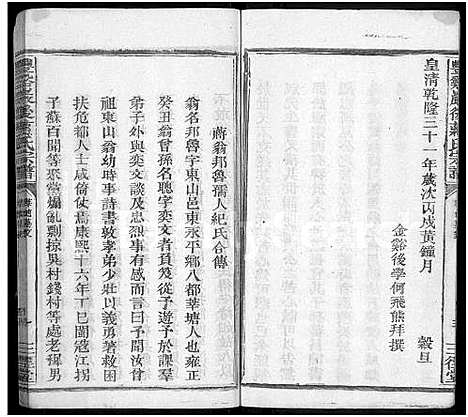 皇清乾隆三十一年歲次丙戌黃鐘月
穀旦
金谿後學何飛熊拜撰
蔣翁邦魯孺人紀氏合傳
翁名邦魯字東山邑東永平鄉八都莘塘人也
癸丑翁曾孫名聰字奕文者貿笈從予遊於課羣
弟子外與奕文談及古忠臣孝子有感而言曰某
祖東山翁幼時事詩書敦孝弟少壯以義勇救困
扶危都人士咸倚仗焉康熙十六年丁巳閩寇江拐
子蘇百聞等聚黨煽亂剽掠吳村錢村等處老穉男